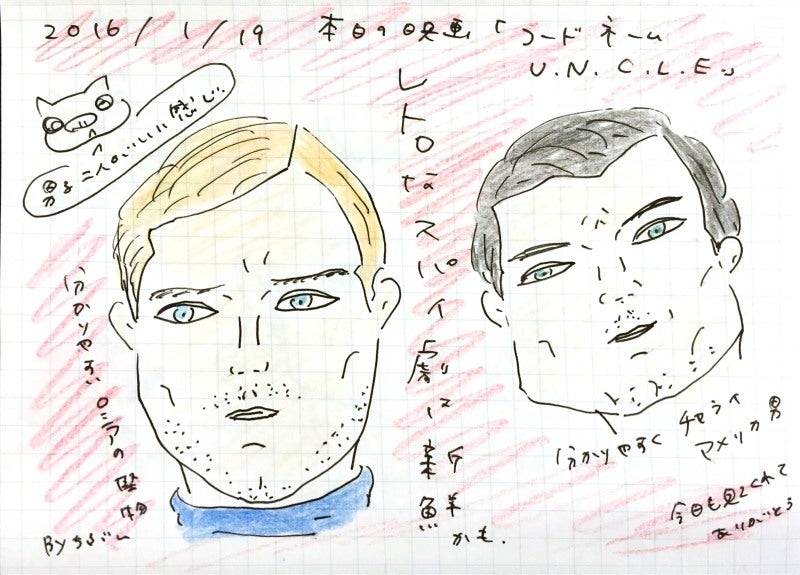 2016/1/19 本日の映画「コードネーム
U.N.C.L.E」
男子二人がいいに感じ
レトロなスパイ劇は新鮮
かも.
分かりやすいロシアの堅物
分かりやすく チャライ
アメリカ男
今日も見てくれて
ありがとう
By